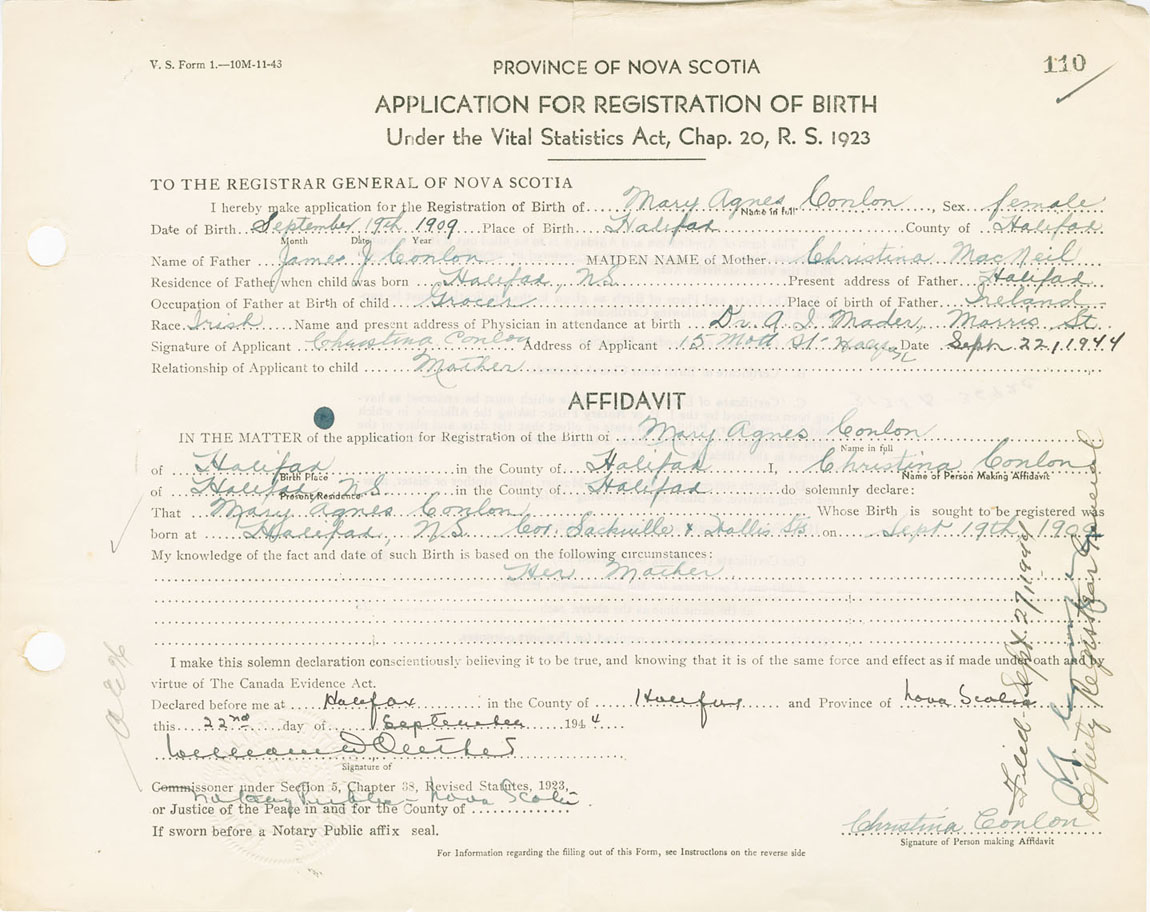 V. S. Form 1.—10M-11-43
PROVINCE OF NOVA SCOTIA
110
APPLICATION FOR REGISTRATION OF BIRTH
Under the Vital Statistics Act, Chap. 20, R. S. 1923
TO THE REGISTRAR GENERAL OF NOVA SCOTIA
I hereby make application for the Registration of Birth of Mary Agnes Conlon, Sex female
Name in full
Date of Birth September 19th 1909 Place of Birth Halifax County of Halifax
Month Date Year
Name of Father James J Conlon MAIDEN NAME of Mother Christina MacNeil
Residence of Father when child was born Halifax, N.S. Present address of Father Halifax
Occupation of Father at Birth of child Grocer Place of birth of Father Ireland
Race Irish Name and present address of Physician in attendance at birth Dr. A. I. Mader, Morris St.
Signature of Applicant Christina Conlon Address of Applicant 15 St. Date Sept 22, 1944
Relationship of Applicant to child Mother
AFFIDAVIT
IN THE MATTER of the application for Registration of the Birth of Mary Agnes Conlon
Name in full
of Halifax in the County of Halifax I, Christina Conlon
Birth Place Name of Person Making Affidavit
of Halifax N.S. in the County of Halifax do solemnly declare:
Present Residence
That Mary Agnes Conlon Whose Birth is sought to be registered was
born at Halifax, N.S. Cor. Sackville & Hollis Sts on Sept 19th 1909
My knowledge of the fact and date of such Birth is based on the following circumstances:
Her Mother
I make this solemn declaration conscientiously believing it to be true, and knowing that it is of the same force and effect as if made under oath and by
virtue of The Canada Evidence Act.
Declared before me at Halifax in the County of Halifax and Province of Nova Scotia
this 22nd day of September 1944
William D
Signature of
Commissoner under Section 5, Chapter 38, Revised Statutes, 1923,
Notary Public - Nova Scotia
or Justice of the Peace in and for the County of
If sworn before a Notary Public affix seal.
Christina Conlon
Signature of Person making Affidavit
For Information regarding the filling out of this Form, see Instructions on the reverse side
Filed - Sept. 27, 1944
Deputy Registrar General